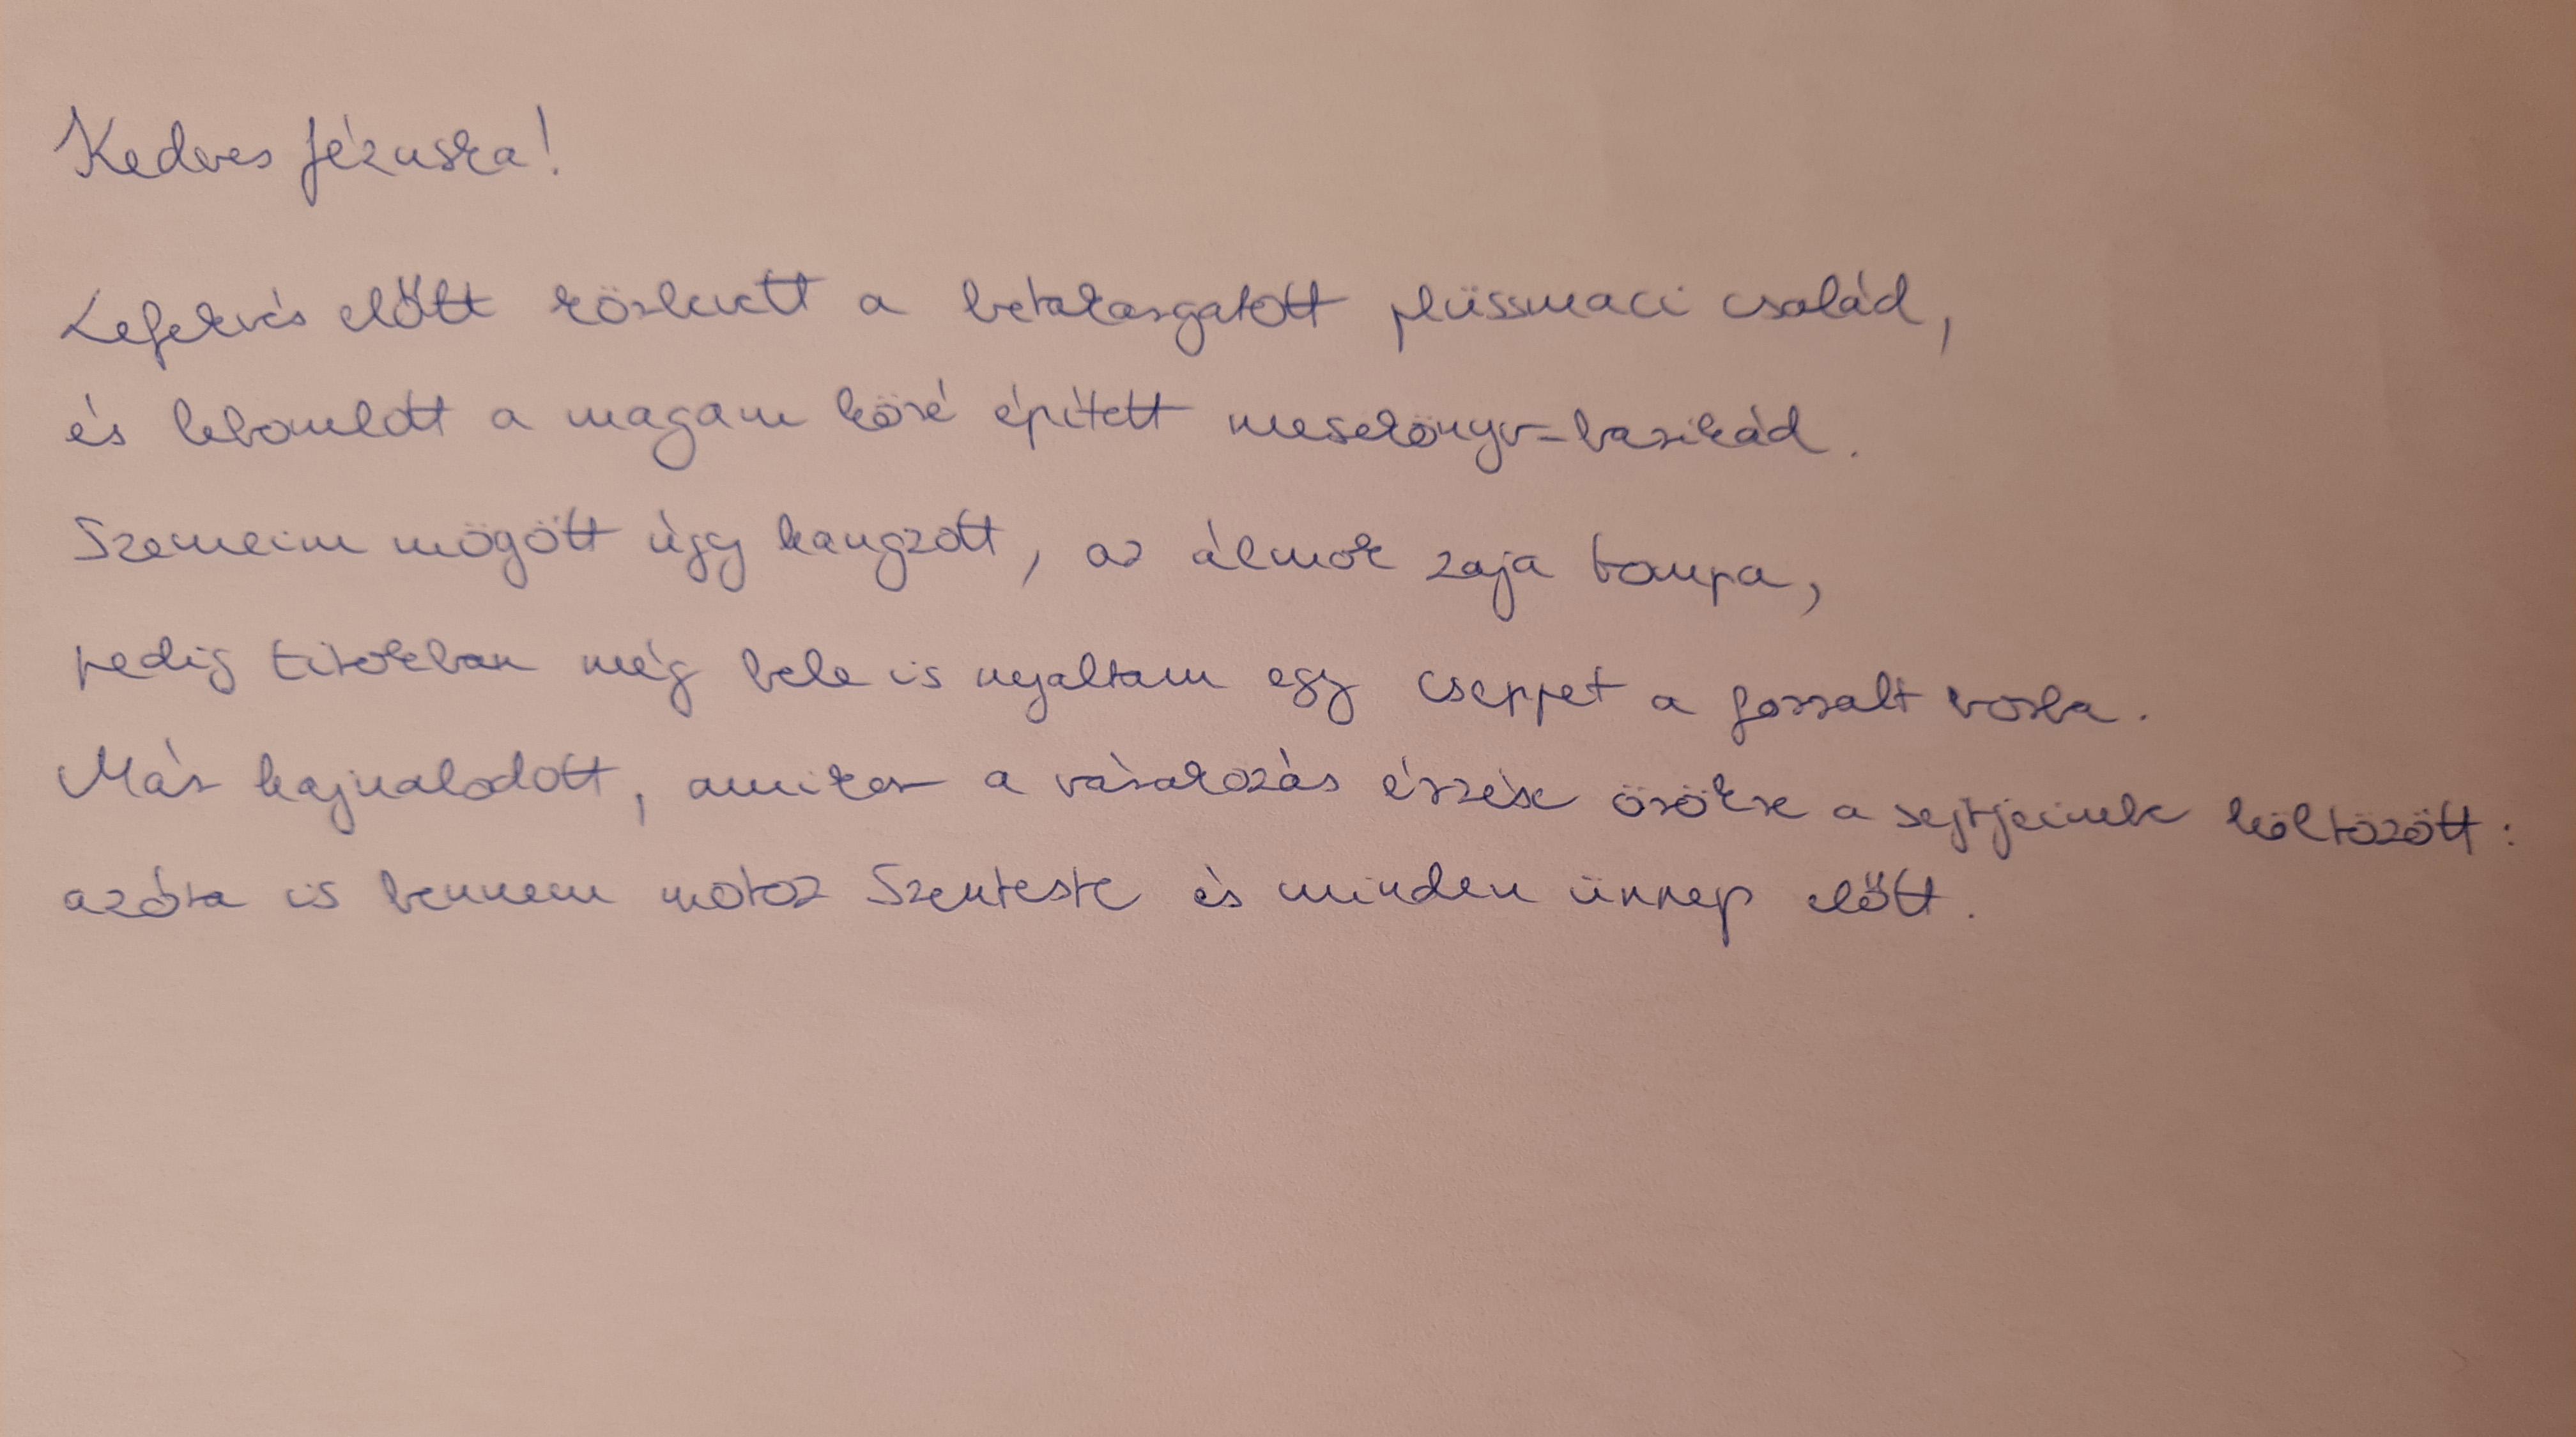 Kedves Jézuska!
Lefekvés előtt körbevett a betakargatott plüssmaci család,
és lebomlott a magam köré épített mesekönyv-barikád.
Szemeim mögött úgy hangzott, az álmok zaja tompa,
pedig titokban még bele is nyaltam egy cseppet a forralt borba.
Már hajnalodott, amikor a várakozás érzése örökre a sejtjeimbe költözött:
azóta is bennem motoz Szenteste és minden ünnep előtt.